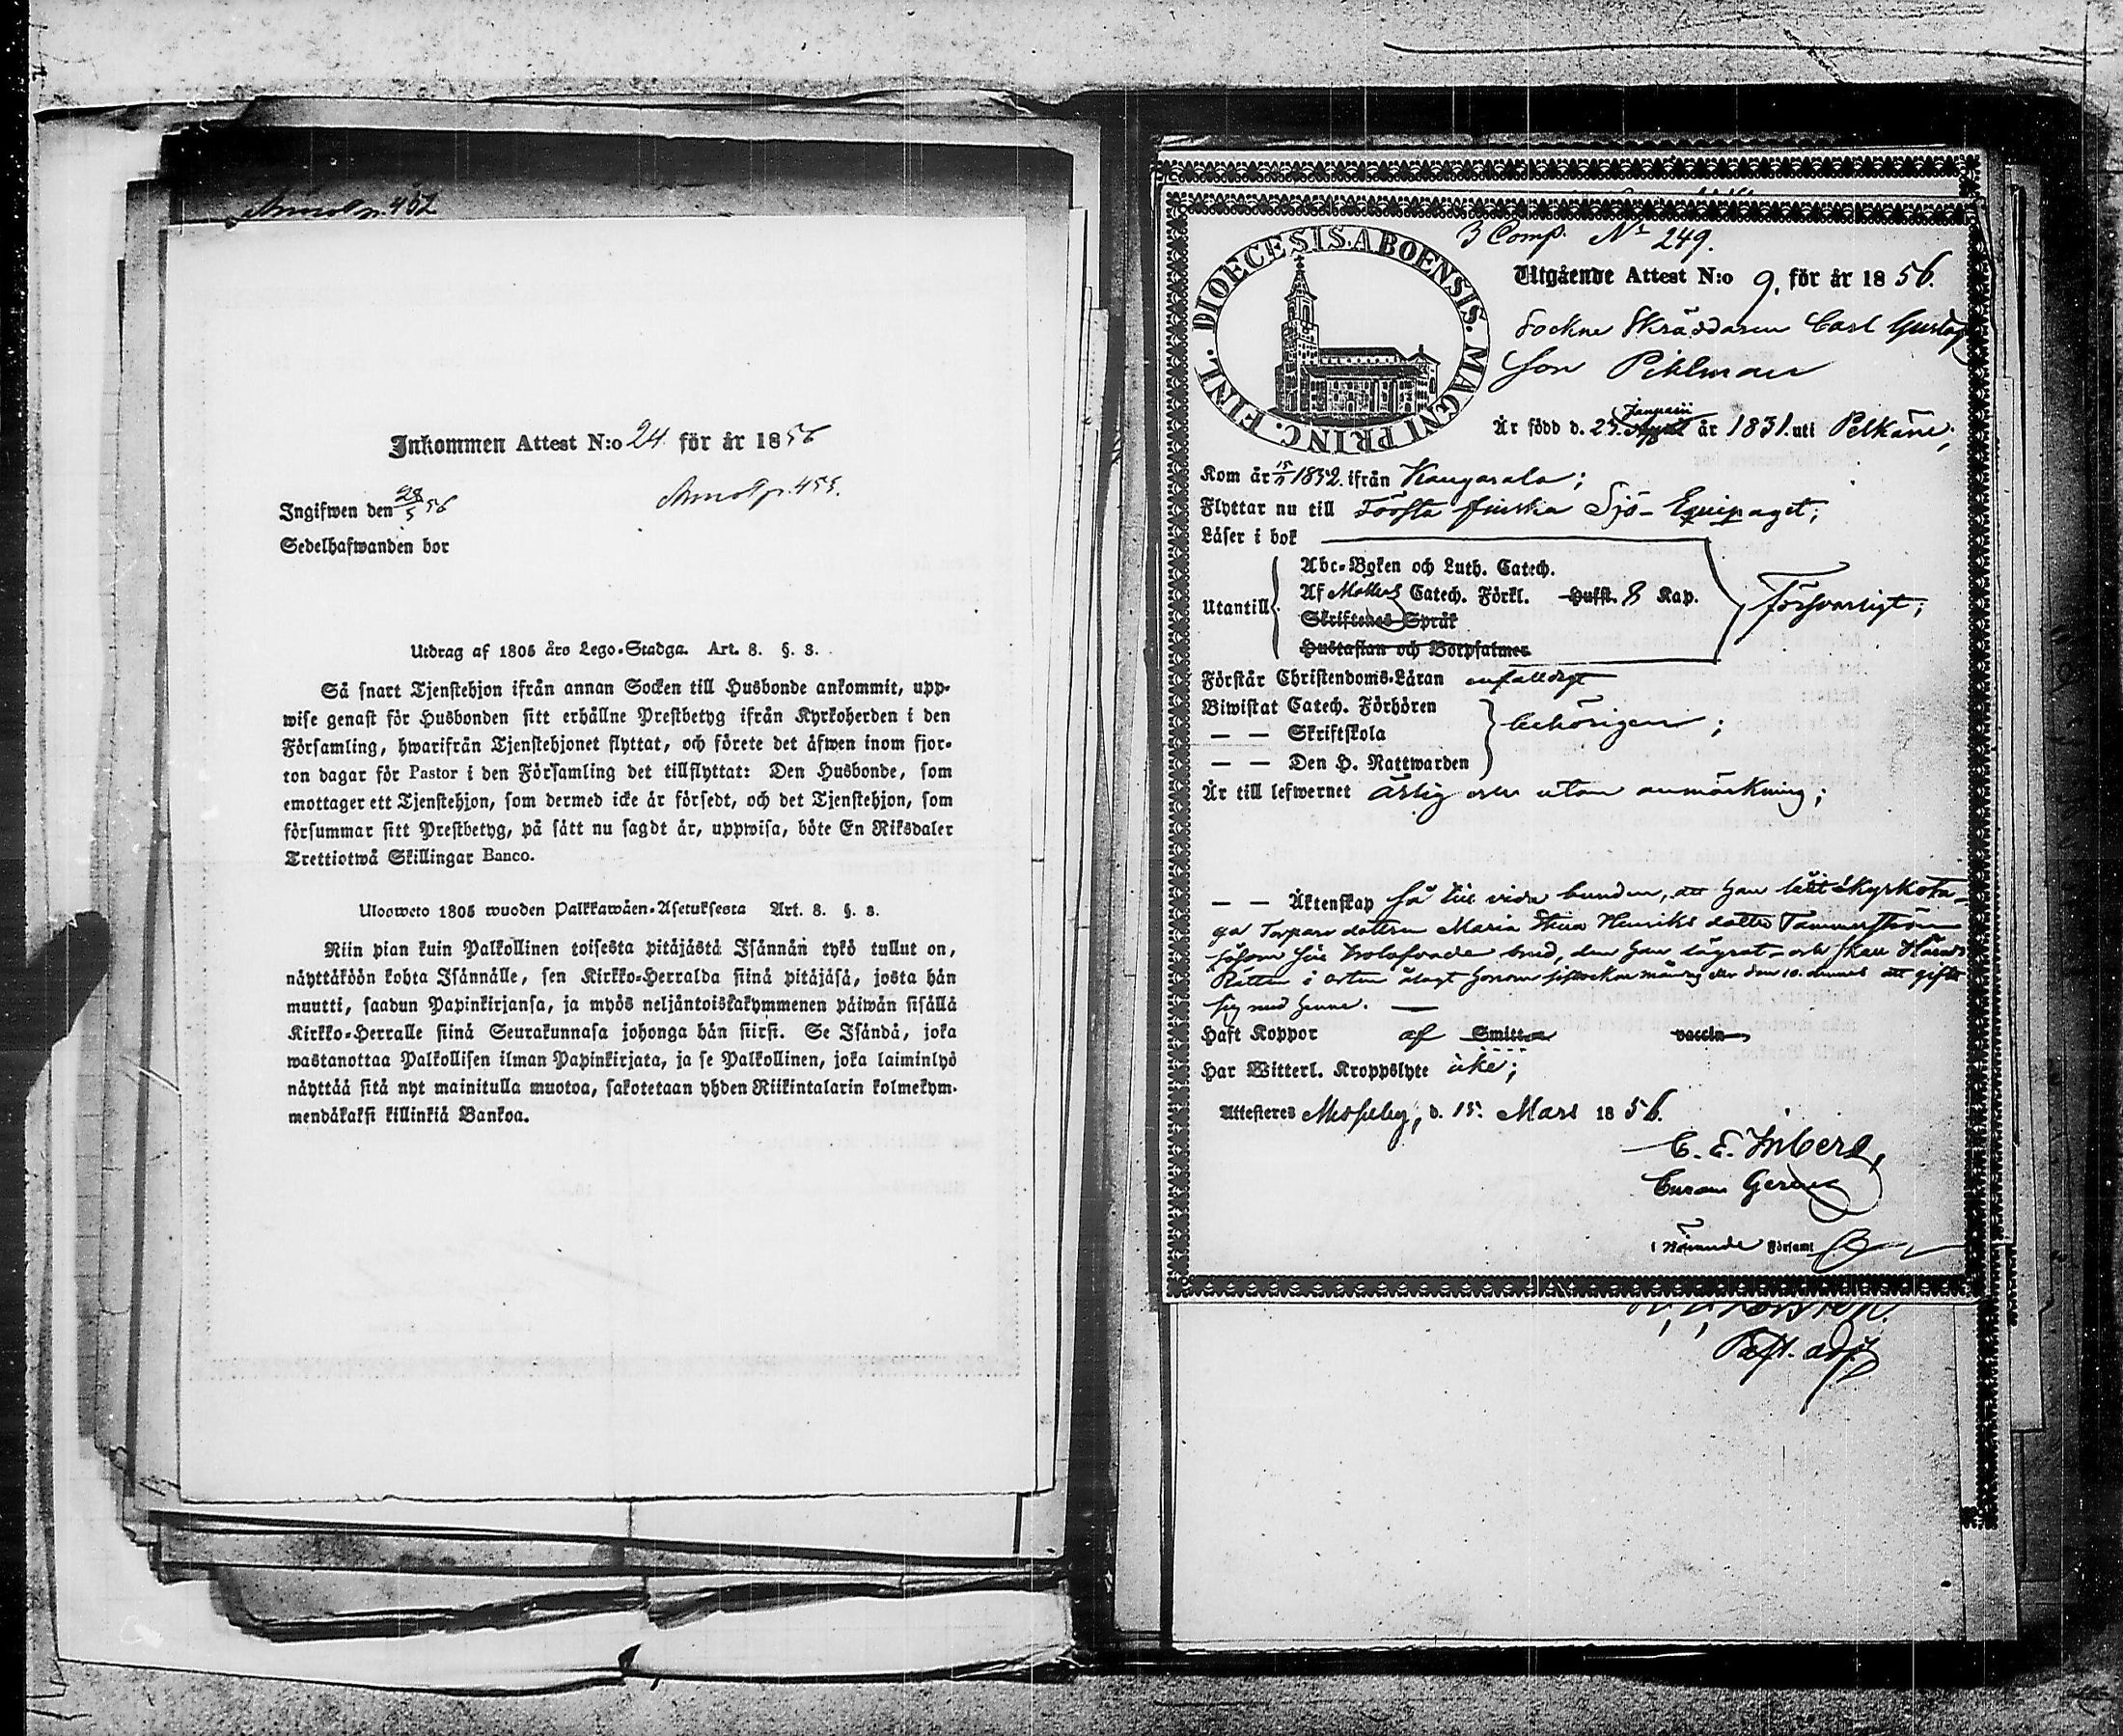 Inkommen Attest N:o 24 för år 1856
Ingifwen den 28/5 56
Sedelhafwanden bor
Utdrag af 1805 års Lego-Stadga. Art. 8. §. 3.
Så snart Tjenstehjon ifrån annan Socken till Husbonde ankommit, upp-
wise genast för Husbonden sitt erhållne Prestbetyg ifrån Kyrkoherden i den
Församling, hwarifrån Tjenstehjonet flyttat, och förete det äfwen inom fjor-
ton dagar för Pastor i den Församling det tillflyttat: Den Husbonde, som
emottager ett Tjenstehjon, som dermed icke är försedt, och det Tjenstehjon, som
försummar sitt Prestbetyg, på sätt nu sagdt är, uppwisa, böte En Riksdaler
Trettiotwå Skillingar Banco.
Ulosweto 1805 wuoden Palkkawäen-Asetuksesta Art. 8. §. 3.
Niin pian kuin Palkollinen toisesta pitäjästä Isännän tykö tullut on,
näyttäköön kohta Isännälle, sen Kirkko-Herralda siinä pitäjäsä, josta hän
muutti, saadun Papinkirjansa, ja myös neljäntoistakymmenen päiwän sisällä
Kirkko-Herralle siinä Seurakunnasa johonga hän siirsi. Se Isändä, joka
wastanottaa Palkollisen ilman Papinkirjata, ja se Palkollinen, joka laiminlyö
näyttää sitä nyt mainitulla muotoa, sakotetaan yhden Riikintalarin kolmekym-
mendäkaksi killinkiä Bankoa.
3 Comp. No 249.
FINL. DIOECESIS. ABOENSIS. MAGNI PRINC.
Utgående Attest N:o 9. för år 1856.
Sockne Skräddaren Carl Gustaf
son Pihlman
Är född d. 23. Januarii år 1831. uti Pelkäne;
Kom år 1852. ifrån Kangasala;
Flyttar nu till Första finska Sjö-Equipaget;
Läser i bok
Utantill
Abc-Boken och Luth. Catech.
Af Möllers Catech. Förkl. Hufst. 8 Kap.
Skriftenes Språk
Hustaflan och Botpsalmer
Försvarligt;
Förstår Christendoms-Läran enfalldigt
Biwistat Catech. Förhören
— — Skriftskola
— — Den H. Nattwarden
behörigen;
Är till lefwernet ärlig och utan anmärkning;
— — Äktenskap så till vida bunden, att han låtit kyrkota-
ga Torpare dottren Maria Stina Henriks dotter Tammerström
såsom sin trolofvade brud, den han lägrat och skall Härads
Rätten i orten ålagt honom sistvekan måndag eller den 10. dennes att gifta
sig med henne. —
Haft Koppor af Smitta vaccin
Har Witterl. Kroppslyte icke;
Attesteres Messuby, d. 15. Mars 1856.
C. E. Inberg,
Curam Gerens
i Församl
Past. adj.